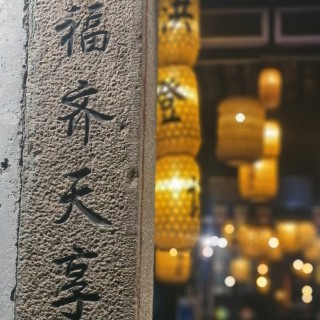 福齐天享
洪登